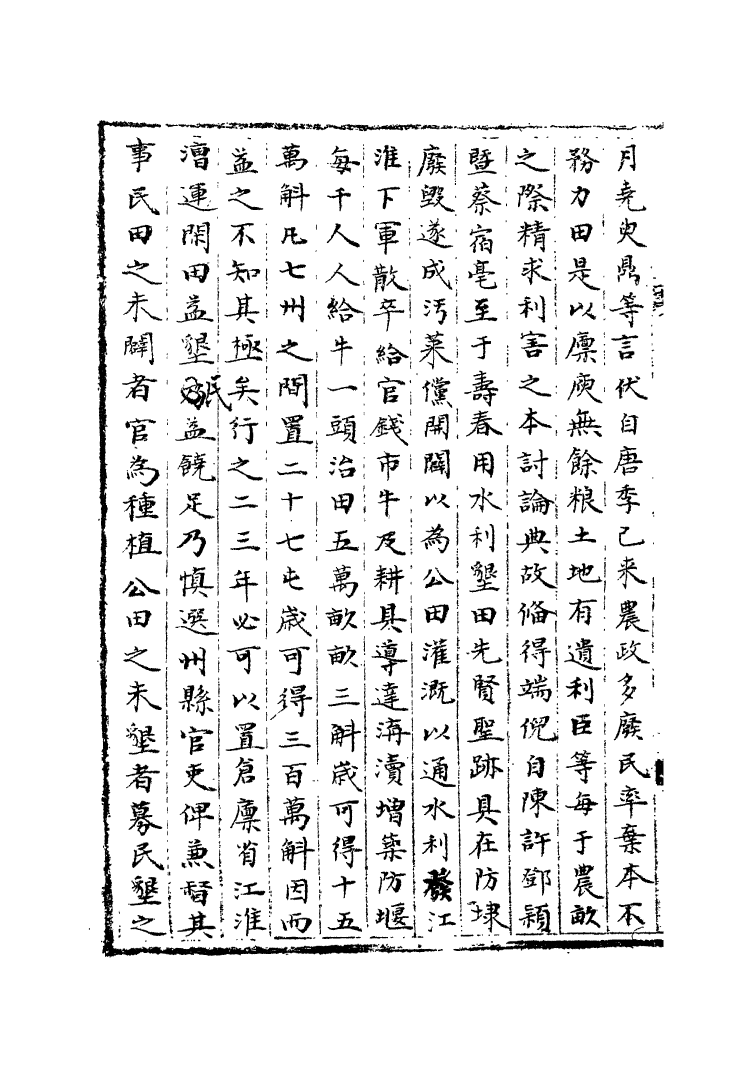 月堯叟鼎等言伏自唐季已来農政多廢民率棄本不
務力田是以廪庾無餘粮土地有遺利臣等每于農畝
之際精求利害之本討論典故俻得端倪自陳許鄧潁
暨蔡宿亳至于壽春用水利墾田先賢聖跡具在防埭
廢毁遂成污莱儻開闢以為公田灌溉以通水利發江
淮下軍散卒給官錢市牛及耕具導達溝瀆增築防堰
每千人人給牛一頭治田五萬畝畝三斛歲可得十五
萬斛凡七州之間置二十七屯歲可得三百萬斛因而
益之不知其極矣行之二三年必可以置倉廪省江淮
漕運閑田益墾民益饒足乃慎選州縣官吏俾兼督其
事民田之未闢者官為種植公田之未墾者募民墾之